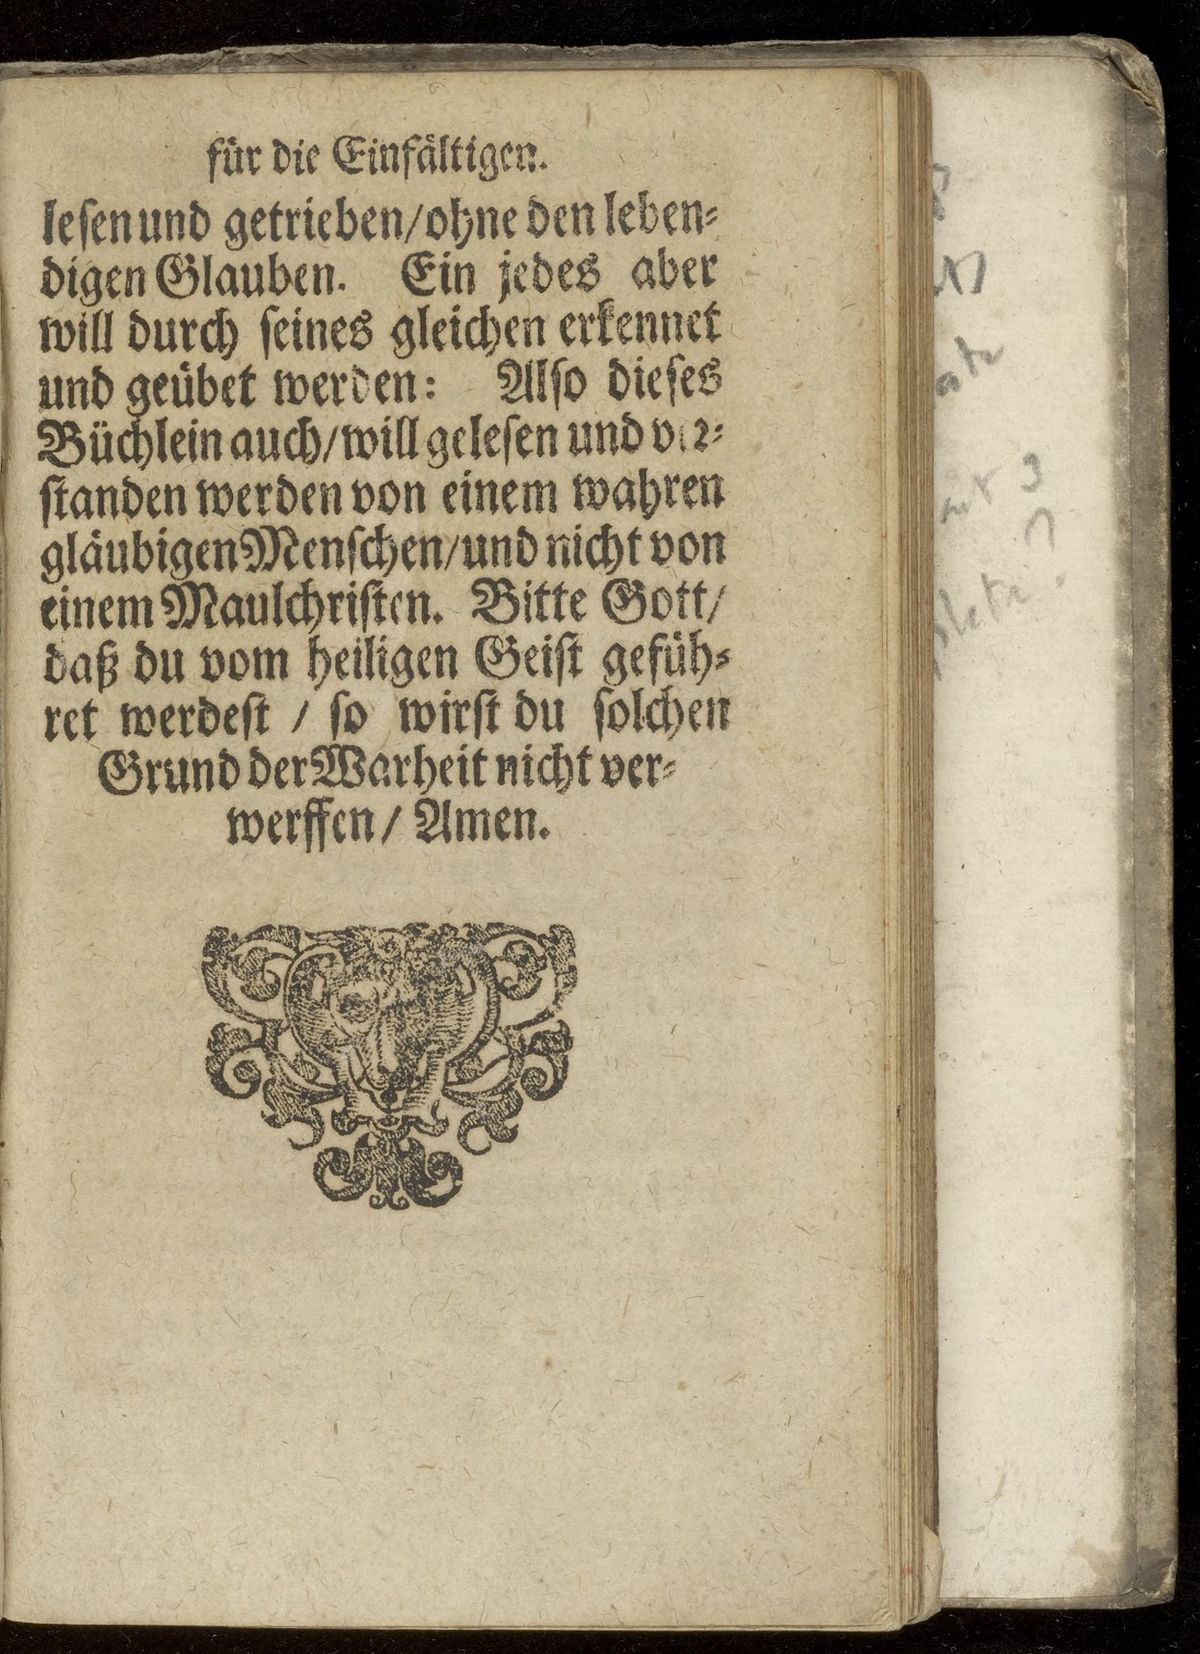 für die Einfältigen.
lesen und getrieben/ohne den leben-
digen Glauben. Ein jedes aber
will durch seines gleichen erkennet
und geübet werden: Also dieses
Büchlein auch/will gelesen und ver-
standen werden von einem wahren
gläubigen Menschen/und nicht von
einem Maulchristen. Bitte Gott/
daß du vom heiligen Geist gefüh-
ret werdest / so wirst du solchen
Grund der Warheit nicht ver-
werffen/ Amen.